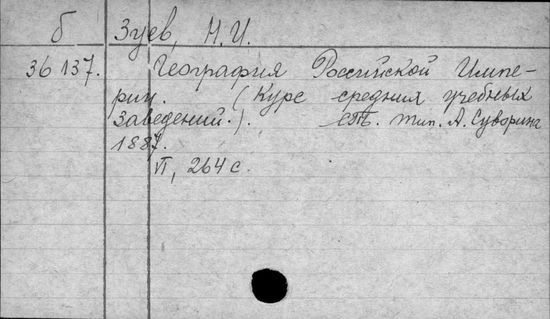 б Зуев, Н.И.
36 137. География Российской Импе-
рии. (Курс средних учебных
заведений.). СПб. тип. А. Суворина
1887.
VI, 264 с.